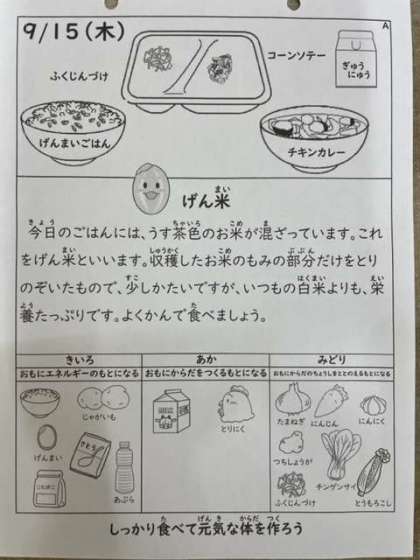 9/15(木)
A
コーンソテー
ぎゅうにゅう
ふくじんづけ
げんまいごはん
チキンカレー
げん米
今日のごはんには、うす茶色のお米が混ざっています。これ
をげん米といいます。収穫したお米のもみの部分だけをとり
のぞいたもので、少しかたいですが、いつもの白米よりも、栄
養たっぷりです。よくかんで食べましょう。
きいろ
あか
みどり
おもにエネルギーのもとになる
おもにからだをつくるもとになる
おもにからだのちょうしをととのえるもとになる
じゃがいも
げんまい
さとう
こむぎこ
あぶら
とりにく
たまねぎ
にんじん
にんにく
つちしょうが
チンゲンサイ
ふくじんづけ
とうもろこし
しっかり食べて元気な体を作ろう